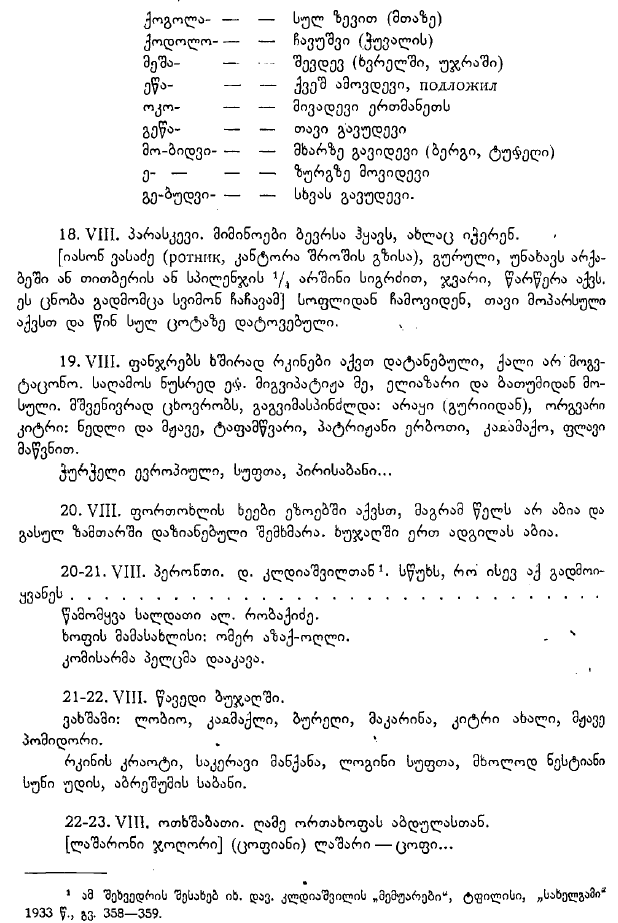 ქოგოლა- — — სულ ზევით (მთაზე)
ქოდოლო- — — ჩავუშვი (ჭუვალის)
მეშა- — — შევდევ (ხვრელში, უჯრაში)
ეწა- — — ქვეშ ამოვდევი, подложил
ოკო- — — მივადევი ერთმანეთს
გეწა- — — თავი გავუდევი
მო-ბიდვი- — — მხარზე გავიდევი (ბერგი, ტუფეღი)
ე- — — ზურგზე მოვიდევი
გე-ბუდვი- — — სხვას გავუდევი.
18. VIII. პარასკევი. მიმინოები ბევრსა ჰყავს, ახლაც იჭერენ.
[იასონ ვასაძე (ротник, კანტორა შროშის გზისა), გურული, უნახავს არქა-
ბეში ან თითბერის ან სპილენჯის ¹/₄ არშინი სიგრძით, ჯვარი, წარწერა აქვს.
ეს ცნობა გადმომცა სვიმონ ჩაჩავამ] სოფლიდან ჩამოვიდენ, თავი მოპარსული
აქვსთ და წინ სულ ცოტაზე დატოვებული.
19. VIII. ფანჯრებს ხშირად რკინები აქვთ დატანებული, ქალი არ მოგვ-
ტაცონო. საღამოს ნუსრედ ეფ. მიგვიპატიჟა მე, ელიაზარი და ბათუმიდან მო-
სული. მშვენივრად ცხოვრობს, გაგვიმასპინძლდა: არაყი (გურიიდან), ორგვარი
კიტრი: ნედლი და მჟავე, ტაფამწვარი, პატრიჟანი ერბოთი, კალმაქო, ფლავი
მაწვნით.
ჭურჭელი ევროპიული, სუფთა, პირისაბანი...
20. VIII. ფორთოხლის ხეები ეზოებში აქვსთ, მაგრამ წელს არ აბია და
გასულ ზამთარში დაზიანებული შემხმარა. ხუჯაღში ერთ ადგილას აბია.
20-21. VIII. პერონთი. დ. კლდიაშვილთან¹. სწუხს, რო ისევ აქ გადმოი-
ყვანეს . . . . . . . . . . . . . . . . . . . . . . . . . . . . . .
წამომყვა სალდათი ალ. რობაქიძე.
ხოფის მამასახლისი: ომერ აზაქ-ოღლი.
კომისარმა პელცმა დააკავა.
21-22. VIII. წავედი ბუჯაღში.
ვახშამი: ლობიო, კალმაქლი, ბურეღი, მაკარინა, კიტრი ახალი, მჟავე
პომიდორი.
რკინის კრაოტი, საკერავი მანქანა, ლოგინი სუფთა, მხოლოდ ნესტიანი
სუნი უდის, აბრეშუმის საბანი.
22-23. VIII. ოთხშაბათი. ღამე ორთახოფას აბდულასთან.
[ლაშარონი ჯოღორი] (ცოფიანი) ლაშარი — ცოფი...
¹ ამ შეხვედრის შესახებ იხ. დავ. კლდიაშვილის „მემუარები“, ტფილისი, „სახელგამი“
1933 წ., გვ. 358—359.